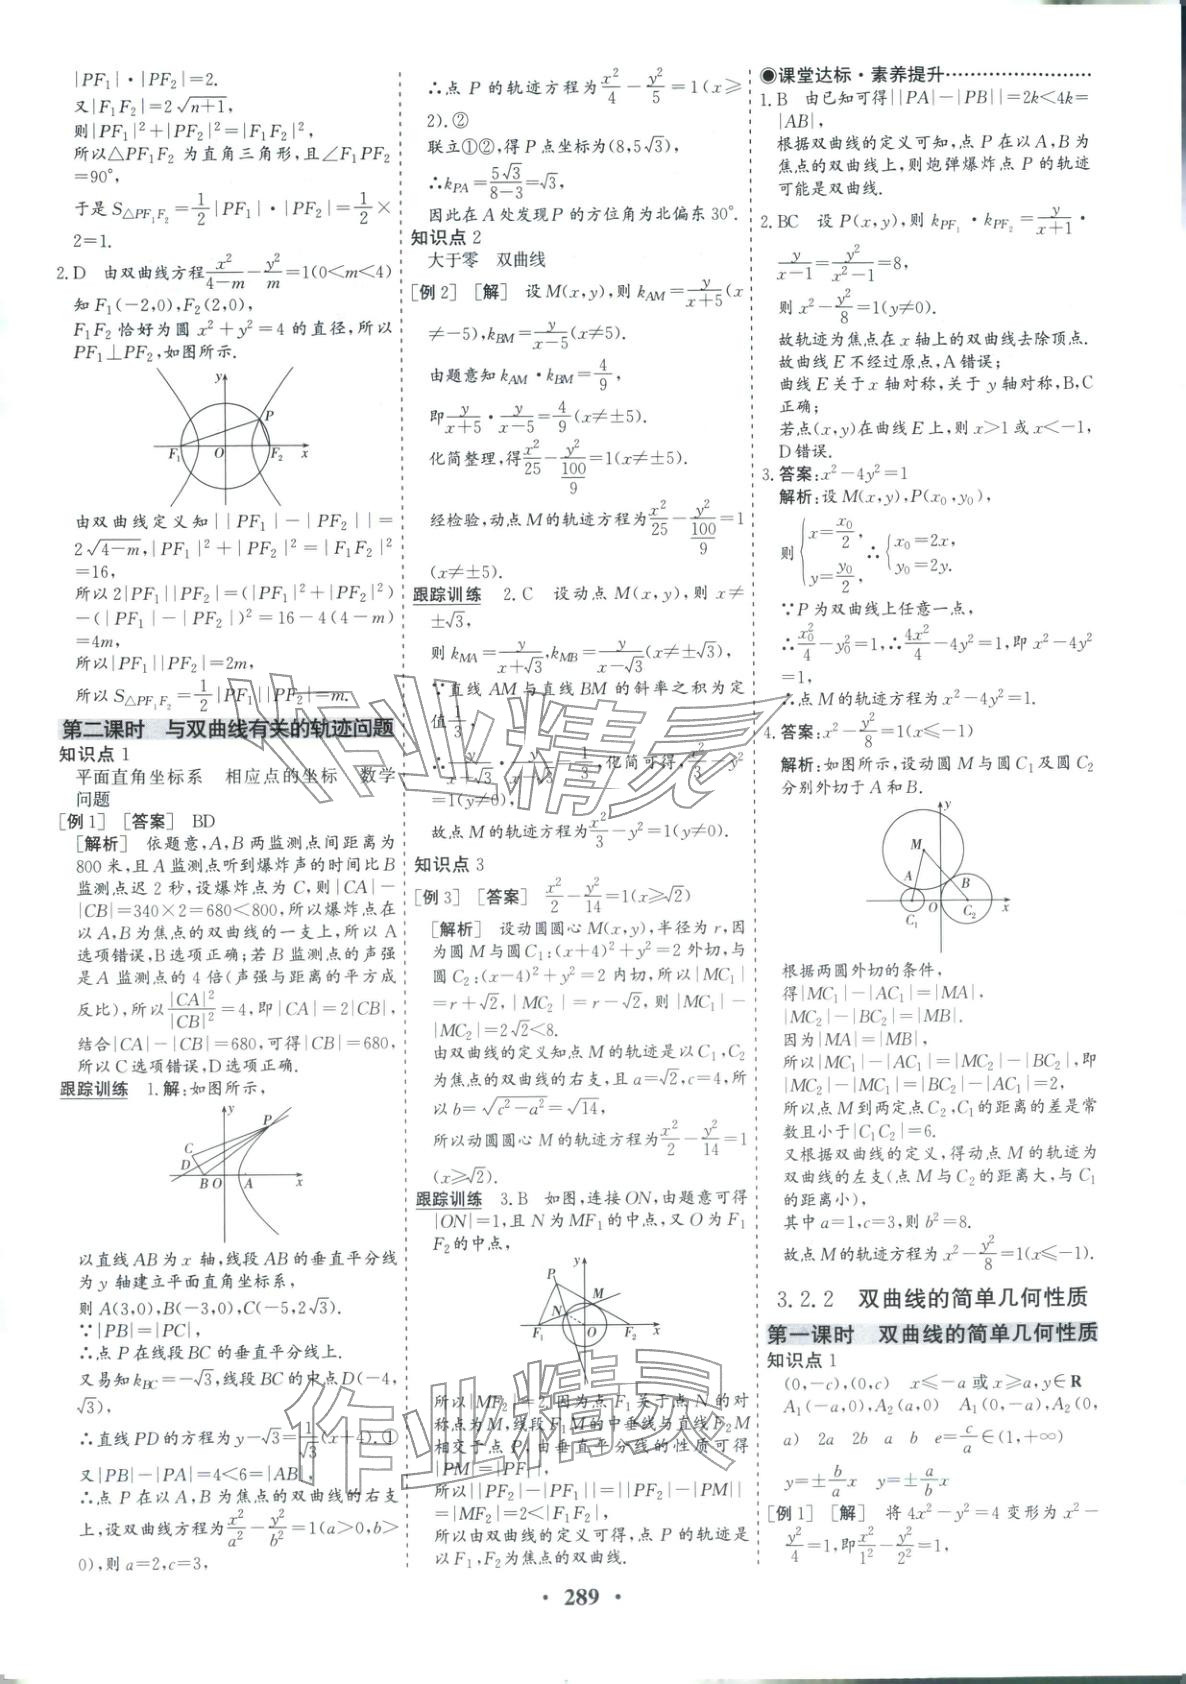 |PF₁|·|PF₂|=2.
又|F₁F₂|=2√(n+1),
则|PF₁|²+|PF₂|²=|F₁F₂|²,
所以△PF₁F₂ 为直角三角形,且∠F₁PF₂
=90°,
于是 S△PF₁F₂=1/2|PF₁|·|PF₂|=1/2×
2=1.
2. D 由双曲线方程x²/(4-m)-y²/m=1(0<m<4)
知 F₁(-2,0),F₂(2,0),
F₁F₂ 恰好为圆 x²+y²=4 的直径,所以
PF₁⊥PF₂,如图所示.
y
P
F₁ O F₂ x
由双曲线定义知||PF₁|-|PF₂||=
2√(4-m),|PF₁|²+|PF₂|²=|F₁F₂|²
=16,
所以2|PF₁||PF₂|=(|PF₁|²+|PF₂|²)
-(|PF₁|-|PF₂|)²=16-4(4-m)
=4m,
所以|PF₁||PF₂|=2m,
所以 S△PF₁F₂=1/2|PF₁||PF₂|=m.
第二课时 与双曲线有关的轨迹问题
知识点 1
平面直角坐标系 相应点的坐标 数学
问题
[例 1] [答案] BD
[解析] 依题意,A,B 两监测点间距离为
800 米,且 A 监测点听到爆炸声的时间比 B
监测点迟 2 秒,设爆炸点为 C,则|CA|-
|CB|=340×2=680<800,所以爆炸点在
以 A,B 为焦点的双曲线的一支上,所以 A
选项错误,B 选项正确;若 B 监测点的声强
是 A 监测点的 4 倍(声强与距离的平方成
反比),所以|CA|²/|CB|²=4,即|CA|=2|CB|,
结合|CA|-|CB|=680,可得|CB|=680,
所以 C 选项错误,D 选项正确.
跟踪训练 1.解:如图所示,
y
P
C
D
B O A x
以直线 AB 为 x 轴,线段 AB 的垂直平分线
为 y 轴建立平面直角坐标系,
则 A(3,0),B(-3,0),C(-5,2√3).
∵|PB|=|PC|,
∴点 P 在线段 BC 的垂直平分线上.
又易知 kBC=-√3,线段 BC 的中点 D(-4,
√3),
∴直线 PD 的方程为 y-√3=1/√3(x+4).①
又|PB|-|PA|=4<6=|AB|,
∴点 P 在以 A,B 为焦点的双曲线的右支
上,设双曲线方程为x²/a²-y²/b²=1(a>0,b>
0),则 a=2,c=3,
∴点 P 的轨迹方程为x²/4-y²/5=1(x≥
2).②
联立①②,得 P 点坐标为(8,5√3),
∴kPA=5√3/(8-3)=√3,
因此在 A 处发现 P 的方位角为北偏东 30°.
知识点 2
大于零 双曲线
[例 2] [解] 设 M(x,y),则 kAM=y/(x+5)(x
≠-5),kBM=y/(x-5)(x≠5).
由题意知 kAM·kBM=4/9,
即y/(x+5)·y/(x-5)=4/9(x≠±5).
化简整理,得x²/25-y²/(100/9)=1(x≠±5).
经检验,动点 M 的轨迹方程为x²/25-y²/(100/9)=1
(x≠±5).
跟踪训练 2. C 设动点 M(x,y),则 x≠
±√3,
则 kMA=y/(x+√3),kMB=y/(x-√3)(x≠±√3),
∵直线 AM 与直线 BM 的斜率之积为定
值1/3,
∴y/(x+√3)·y/(x-√3)=1/3,化简可得,x²/3-y²
=1(y≠0).
故点 M 的轨迹方程为x²/3-y²=1(y≠0).
知识点 3
[例 3] [答案] x²/2-y²/14=1(x≥√2)
[解析] 设动圆圆心 M(x,y),半径为 r,因
为圆 M 与圆 C₁:(x+4)²+y²=2 外切,与
圆 C₂:(x-4)²+y²=2 内切,所以|MC₁|
=r+√2,|MC₂|=r-√2,则|MC₁|-
|MC₂|=2√2<8.
由双曲线的定义知点 M 的轨迹是以 C₁,C₂
为焦点的双曲线的右支,且 a=√2,c=4,所
以 b=√(c²-a²)=√14,
所以动圆圆心 M 的轨迹方程为x²/2-y²/14=1
(x≥√2).
跟踪训练 3. B 如图,连接 ON,由题意可得
|ON|=1,且 N 为 MF₁ 的中点,又 O 为 F₁
F₂ 的中点,
y
P
M
N
F₁ O F₂ x
所以|MF₂|=2.因为点 F₁ 关于点 N 的对
称点为 M,线段 F₁M 的中垂线与直线 F₂M
相交于点 P,由垂直平分线的性质可得
|PM|=|PF₁|,
所以||PF₂|-|PF₁||=||PF₂|-|PM||
=|MF₂|=2<|F₁F₂|,
所以由双曲线的定义可得,点 P 的轨迹是
以 F₁,F₂ 为焦点的双曲线.
◉课堂达标·素养提升
1. B 由已知可得||PA|-|PB||=2k<4k=
|AB|,
根据双曲线的定义可知,点 P 在以 A,B 为
焦点的双曲线上,则炮弹爆炸点 P 的轨迹
可能是双曲线.
2. BC 设 P(x,y),则 kPF₁·kPF₂=y/(x+1)·
y/(x-1)=y²/(x²-1)=8,
则 x²-y²/8=1(y≠0).
故轨迹为焦点在 x 轴上的双曲线去除顶点.
故曲线 E 不经过原点,A 错误;
曲线 E 关于 x 轴对称,关于 y 轴对称,B,C
正确;
若点(x,y)在曲线 E 上,则 x>1 或 x<-1,
D 错误.
3. 答案:x²-4y²=1
解析:设 M(x,y),P(x₀,y₀),
则{x=x₀/2, y=y₀/2 ∴{x₀=2x, y₀=2y.
∵P 为双曲线上任意一点,
∴x₀²/4-y₀²=1,∴4x²/4-4y²=1,即 x²-4y²
=1.
∴点 M 的轨迹方程为 x²-4y²=1.
4. 答案:x²-y²/8=1(x≤-1)
解析:如图所示,设动圆 M 与圆 C₁ 及圆 C₂
分别外切于 A 和 B.
y
M
A B
C₁ O C₂ x
根据两圆外切的条件,
得|MC₁|-|AC₁|=|MA|,
|MC₂|-|BC₂|=|MB|.
因为|MA|=|MB|,
所以|MC₁|-|AC₁|=|MC₂|-|BC₂|,即
|MC₂|-|MC₁|=|BC₂|-|AC₁|=2,
所以点 M 到两定点 C₂,C₁ 的距离的差是常
数且小于|C₁C₂|=6.
又根据双曲线的定义,得动点 M 的轨迹为
双曲线的左支(点 M 与 C₂ 的距离大,与 C₁
的距离小),
其中 a=1,c=3,则 b²=8.
故点 M 的轨迹方程为 x²-y²/8=1(x≤-1).
3.2.2 双曲线的简单几何性质
第一课时 双曲线的简单几何性质
知识点 1
(0,-c),(0,c) x≤-a 或 x≥a,y∈R
A₁(-a,0),A₂(a,0) A₁(0,-a),A₂(0,
a) 2a 2b a b e=c/a∈(1,+∞)
y=±b/a x y=±a/b x
[例 1] [解] 将 4x²-y²=4 变形为 x²-
y²/4=1,即x²/1²-y²/2²=1,
· 289 ·
作业精灵
作业精灵